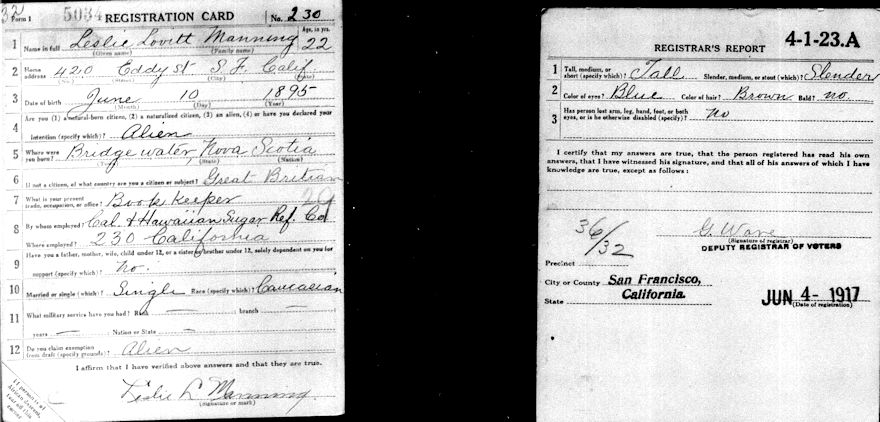 32
Form 1 5034 REGISTRATION CARD No. 230
1 Name in full Leslie Lovitt Manning Age, in yrs. 22
(Given name) (Family name)
2 Home address 420 Eddy st S.F. Calif.
(No.) (Street) (City) (State)
3 Date of birth June 10 1895
(Month) (Day) (Year)
4 Are you (1) a natural-born citizen, (2) a naturalized citizen, (3) an alien, (4) or have you declared your
intention (specify which)? Alien
5 Where were you born? Bridgewater, Nova Scotia
(Town) (State) (Nation)
6 If not a citizen, of what country are you a citizen or subject? Great Britian
7 What is your present trade, occupation, or office? Book Keeper 20
8 By whom employed? Cal. & Hawaiian Sugar Ref. Co
Where employed? 230 California
9 Have you a father, mother, wife, child under 12, or a sister or brother under 12, solely dependent on you for
support (specify which)? no.
10 Married or single (which)? Single Race (specify which)? Caucasian
11 What military service have you had? Rank — branch —
years — Nation or State —
12 Do you claim exemption from draft (specify grounds)? Alien
I affirm that I have verified above answers and that they are true.
Leslie L Manning
(Signature or mark)
If person is of African descent, tear off this corner
REGISTRAR'S REPORT 4-1-23.A
1 Tall, medium, or short (specify which)? Tall Slender, medium, or stout (which)? Slender
2 Color of eyes? Blue Color of hair? Brown Bald? no.
3 Has person lost arm, leg, hand, foot, or both eyes, or is he otherwise disabled (specify)? no
I certify that my answers are true, that the person registered has read his own
answers, that I have witnessed his signature, and that all of his answers of which I have
knowledge are true, except as follows:
36/32
G. Ware
(Signature of registrar)
DEPUTY REGISTRAR OF VOTERS
Precinct
City or County San Francisco,
State California.
JUN 4 - 1917
(Date of registration)